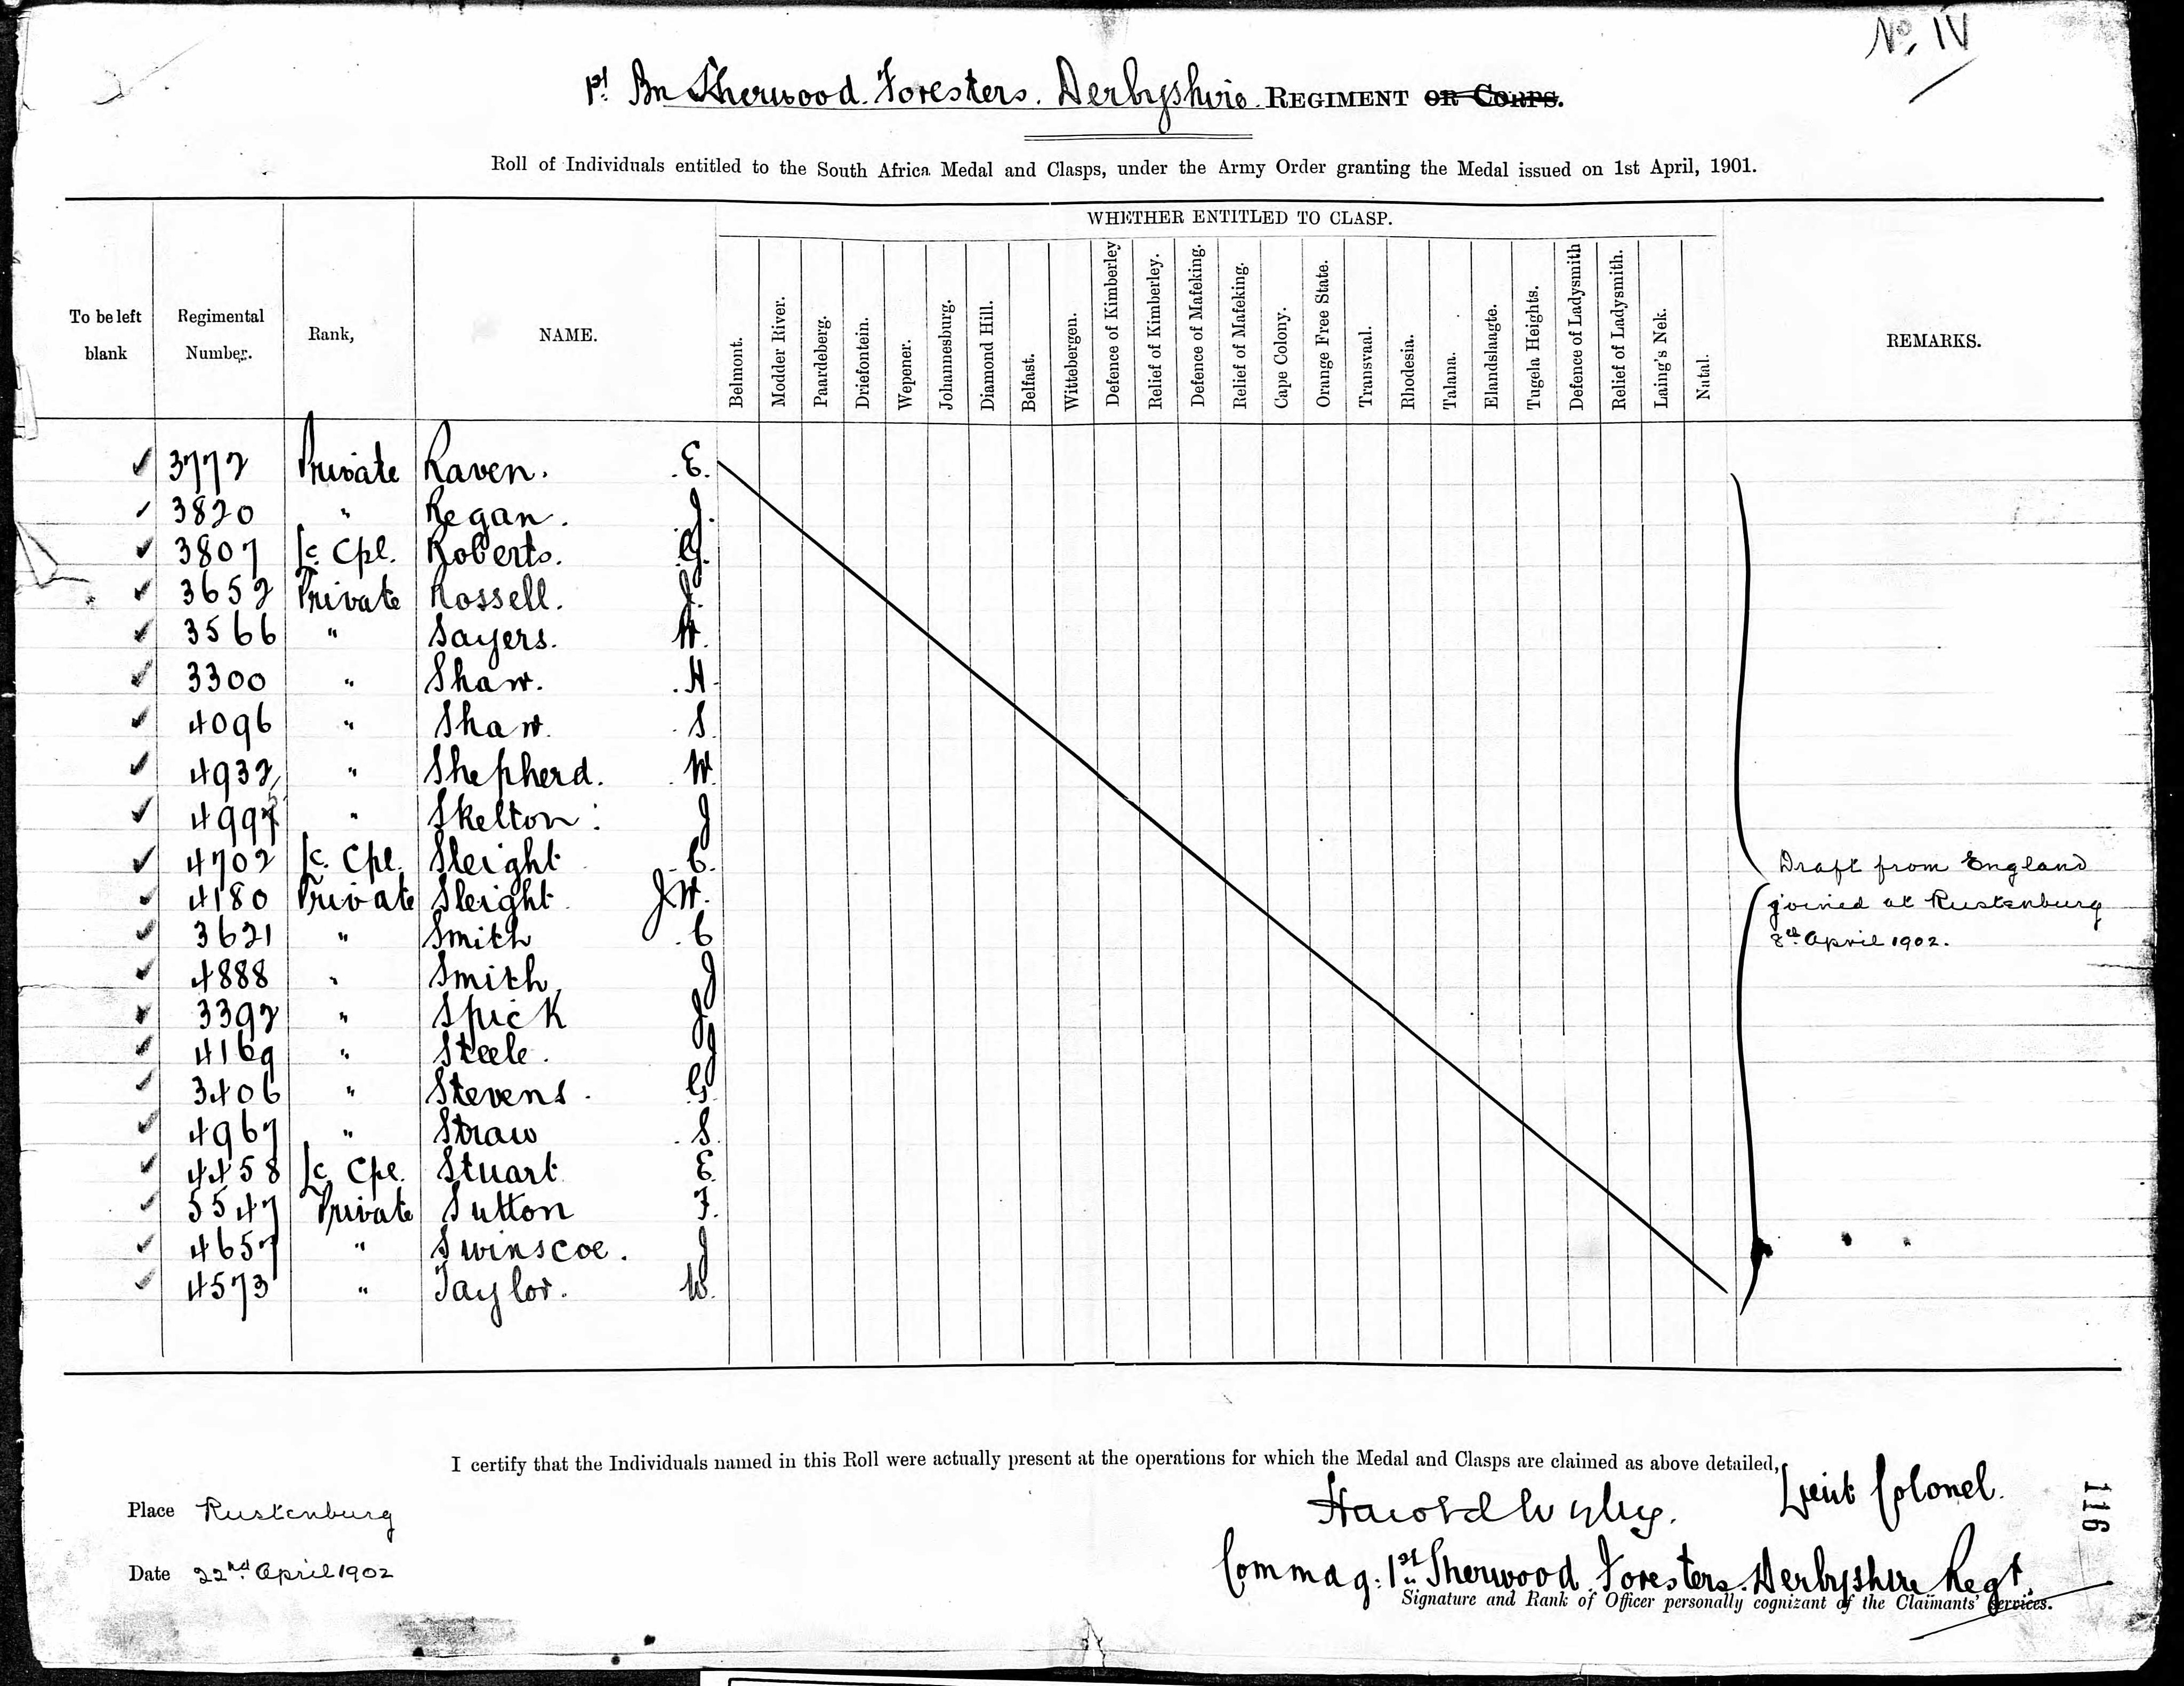 No. IV
1st Bn Sherwood Foresters. Derbyshire REGIMENT OR CORPS.
Roll of Individuals entitled to the South Africa Medal and Clasps, under the Army Order granting the Medal issued on 1st April, 1901.
WHETHER ENTITLED TO CLASP.
To be left blank
Regimental Number.
Rank,
NAME.
Belmont.
Modder River.
Paardeberg.
Driefontein.
Wepener.
Johannesburg.
Diamond Hill.
Belfast.
Wittebergen.
Defence of Kimberley
Relief of Kimberley.
Defence of Mafeking.
Relief of Mafeking.
Cape Colony.
Orange Free State.
Transvaal.
Rhodesia.
Talana.
Elandslaagte.
Tugela Heights.
Defence of Ladysmith
Relief of Ladysmith.
Laing's Nek.
Natal.
REMARKS.
✓ 3772 Private Raven. E.
✓ 3820 " Regan. J.
✓ 3807 Lc. Cpl. Roberts. G.
✓ 3652 Private Rossell. J.
✓ 3566 " Sayers. W.
✓ 3300 " Shaw. H.
✓ 4096 " Shaw. S.
✓ 4932 " Shepherd. W.
✓ " Skelton. J
✓ 4702 Lc. Cpl. Sleight C.
✓ 4180 Private Sleight J.W.
✓ 3621 " Smith C
✓ 4888 " Smith, J
✓ 3392 " Spick J
✓ 4169 " Steele. J
✓ 3406 " Stevens. G.
✓ 4967 " Straw S.
✓ 4458 Lc. Cpl. Stuart E.
✓ 5547 Private Sutton F.
✓ 4657 " Swinscoe. J
✓ 4573 " Taylor. W.
Draft from England
joined at Rustenburg
8th April 1902.
I certify that the Individuals named in this Roll were actually present at the operations for which the Medal and Clasps are claimed as above detailed,
Place Rustenburg
Lieut Colonel.
Date 22nd April 1902
Commdg. 1st Sherwood Foresters. Derbyshire Regt.
Signature and Rank of Officer personally cognizant of the Claimants' services.
116